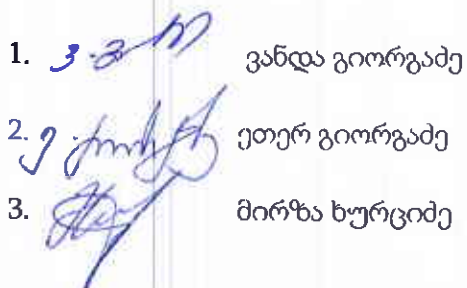 1. ვანდა გიორგაძე
2. ეთერ გიორგაძე
3. მირზა ხურციძე